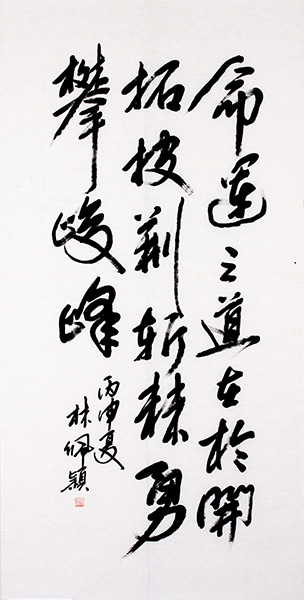 命運之道在於開
拓披荆斩棘勇
攀峻峰
丙申夏
林佩穎